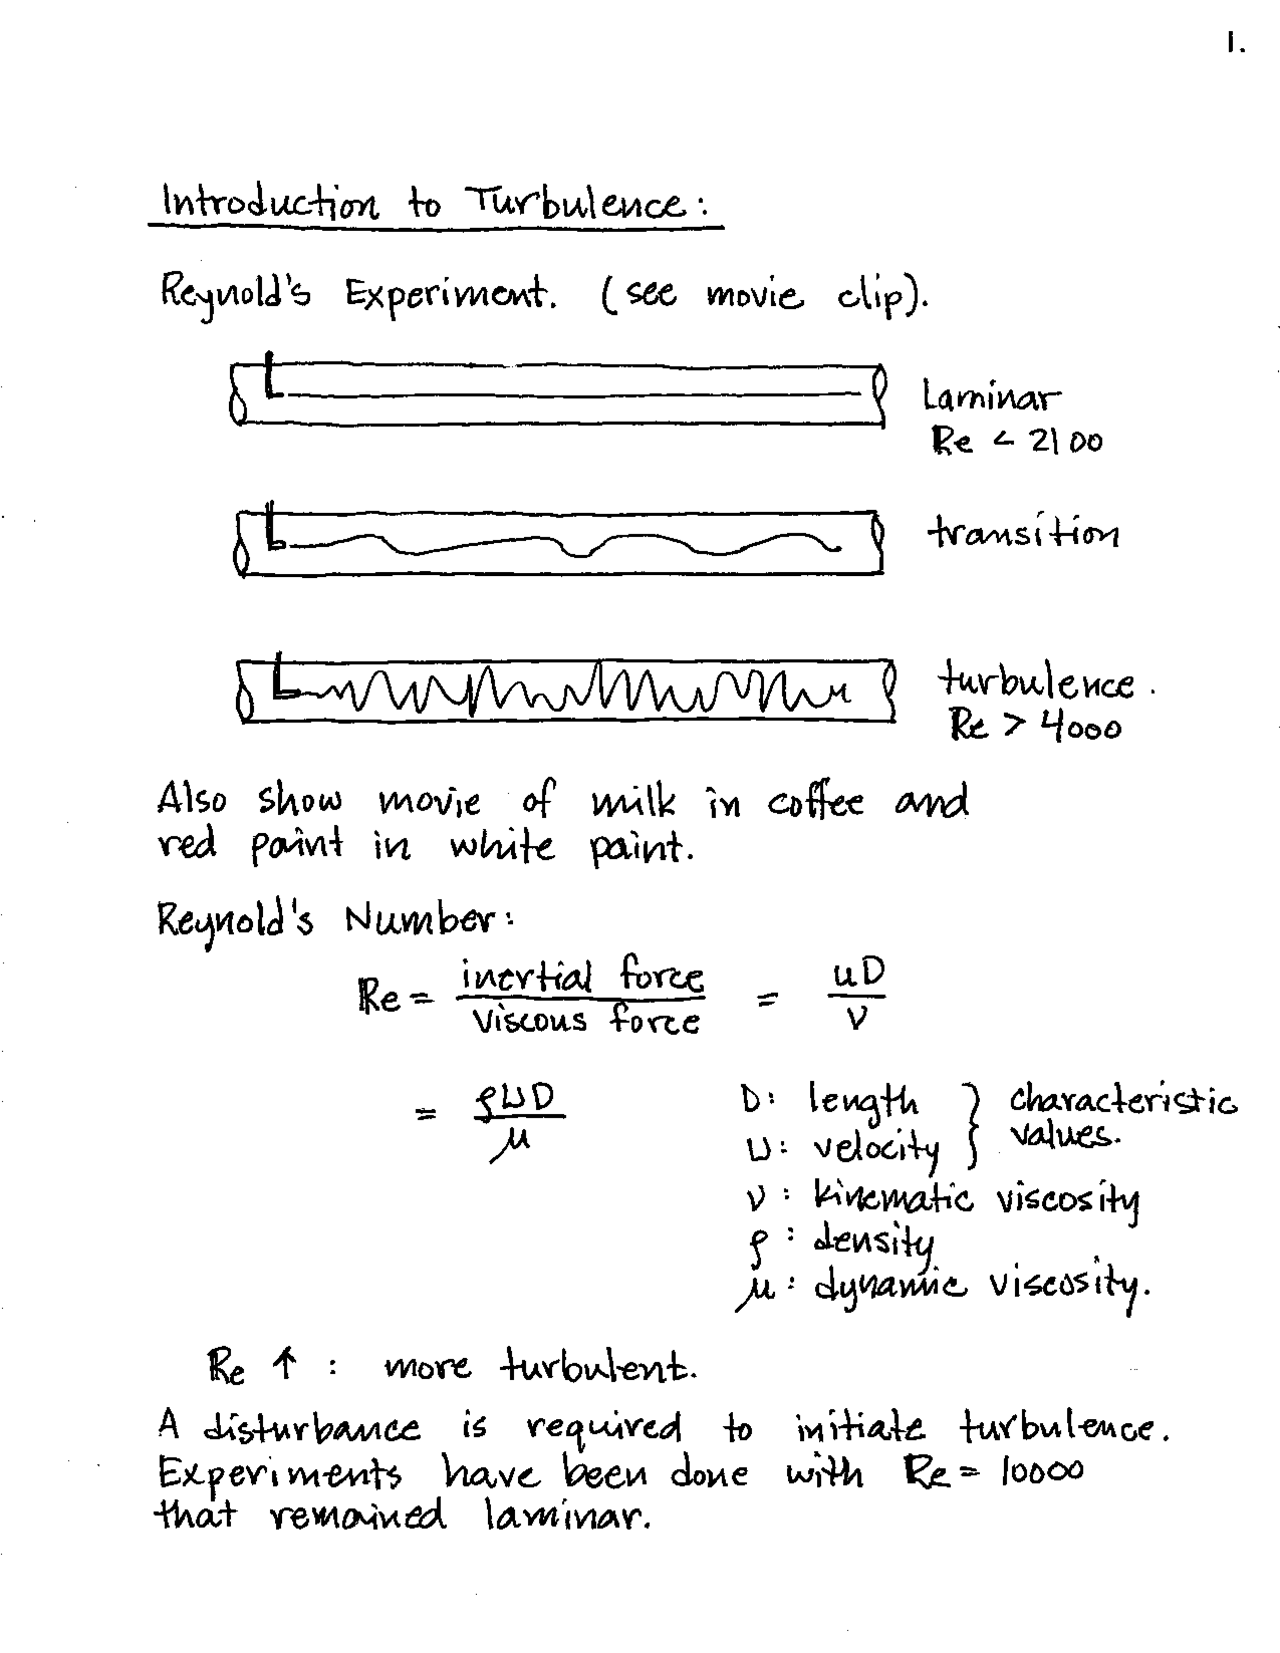 1.
Introduction to Turbulence:
Reynold's Experiment. (see movie clip).
Laminar
Re < 2100
transition
turbulence.
Re > 4000
Also show movie of milk in coffee and
red paint in white paint.
Reynold's Number:
Re = inertial force / viscous force = uD / ν
= ρUD / μ
D: length } characteristic
U: velocity } values.
ν: kinematic viscosity
ρ: density
μ: dynamic viscosity.
Re ↑ : more turbulent.
A disturbance is required to initiate turbulence.
Experiments have been done with Re = 10000
that remained laminar.